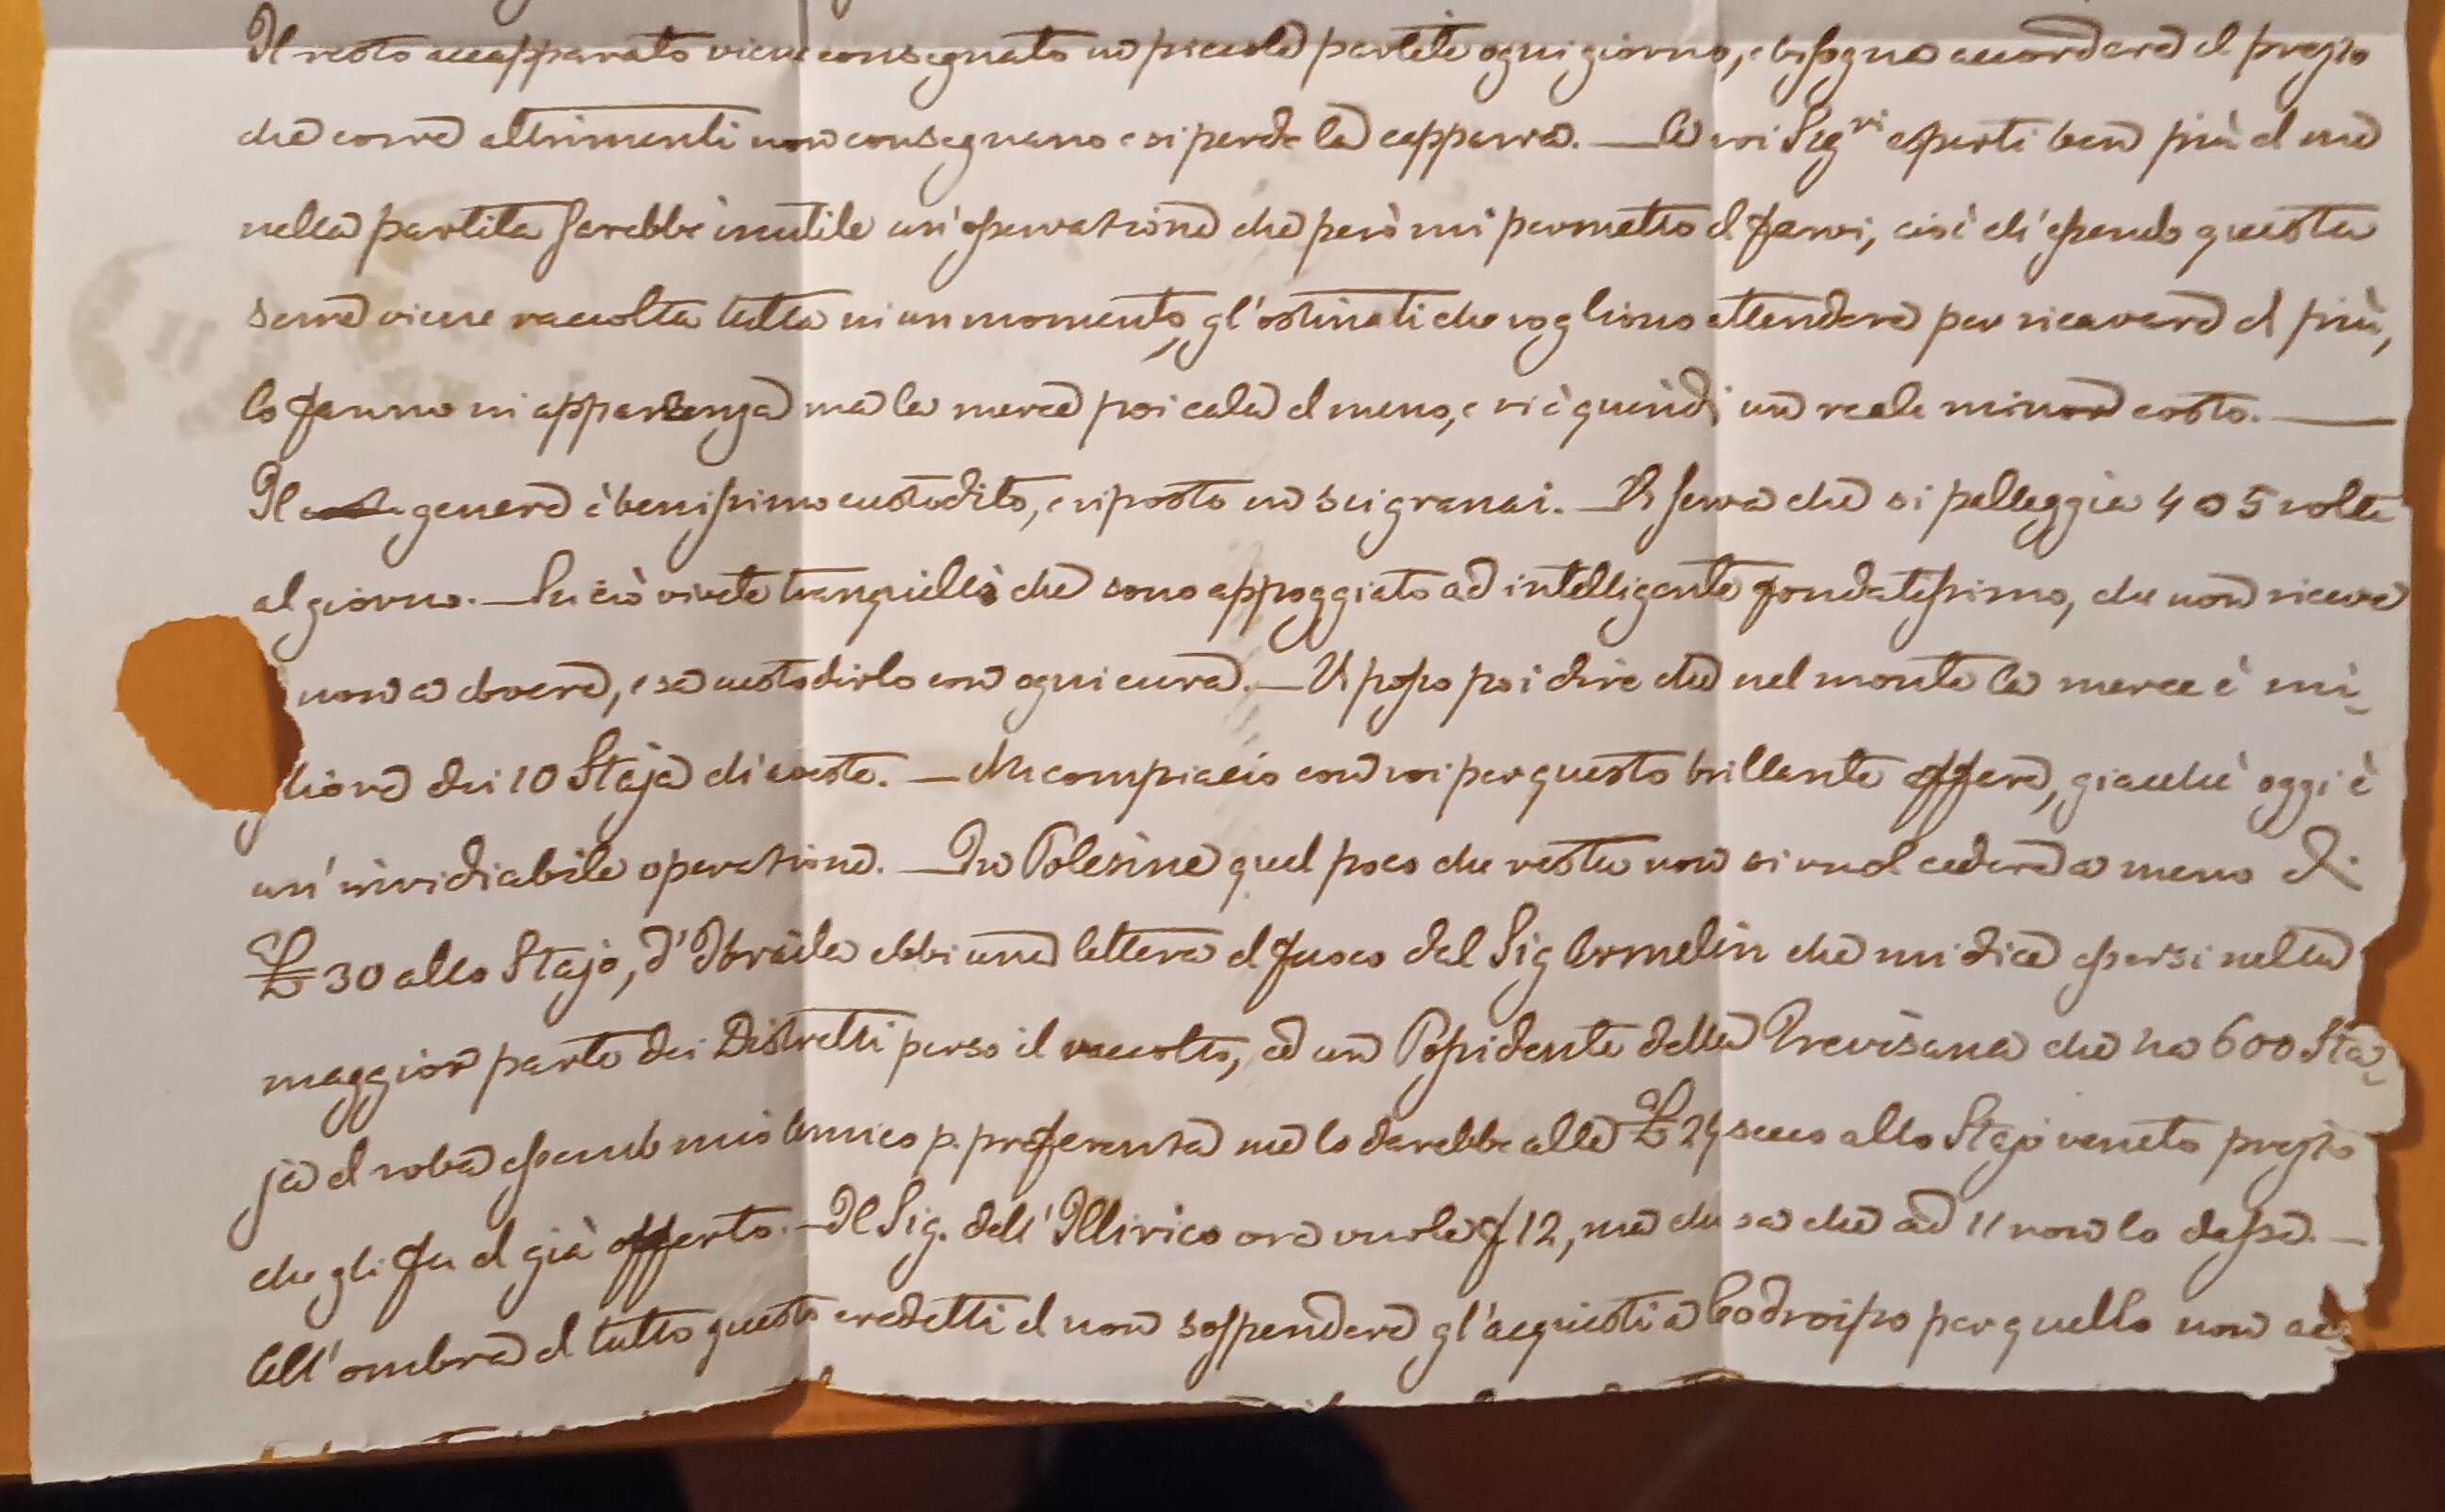 Il resto accapparato viene consegnato in piccole partite ogni giorno, e bisogna accordare il prezzo
che corre altrimenti non consegnano e si perde la capparra. — A voi Sig.ri esperti ben più di me
nella partita sarebbe inutile un'osservazione che però mi permetto di farvi, cioè ch'essendo questa
viene raccolta tutta in un momento, gl'ostinati che vogliono attendere per ricavare di più,
lo fanno in apparenza ma la merce poi cala di meno, e vi è quindi un reale minor costo. —
Il genere è benissimo custodito, e riposto in sei granai. — che si palleggia 4 o 5 volte
al giorno. — Su ciò vivete tranquilli che sono appoggiato ad intelligente fondatissimo, che non riceve
non a dovere, e sa custodirlo con ogni cura. — Vi posso poi dire che nel monte la merce è mi-
gliore dei 10 Staja di costo. — Mi compiaccio con voi per questo brillante affare, giacchè oggi è
un'invidiabile operazione. — In Polesine quel poco che resta non si vuol cedere a meno di
£ 30 allo Stajo, d'Ibraila ebbi una lettera di fuoco dal Sig Armelin che mi dice essersi nella
maggior parte dei Distretti perso il raccolto, ed un Possidente della Trevisana che ha 600 Sta-
ja di roba essendo mio Amico p. preferenza me lo darebbe alle £ 29 secco allo Stajo veneto prezzo
che gli fu di già offerto. — Il Sig. dell'Illirico ora vuole f 12, ma chi sa che ad 11 non lo dasse. —
All'ombra di tutto questo credetti di non sospendere gl'acquisti a Codroipo per quello non ac-